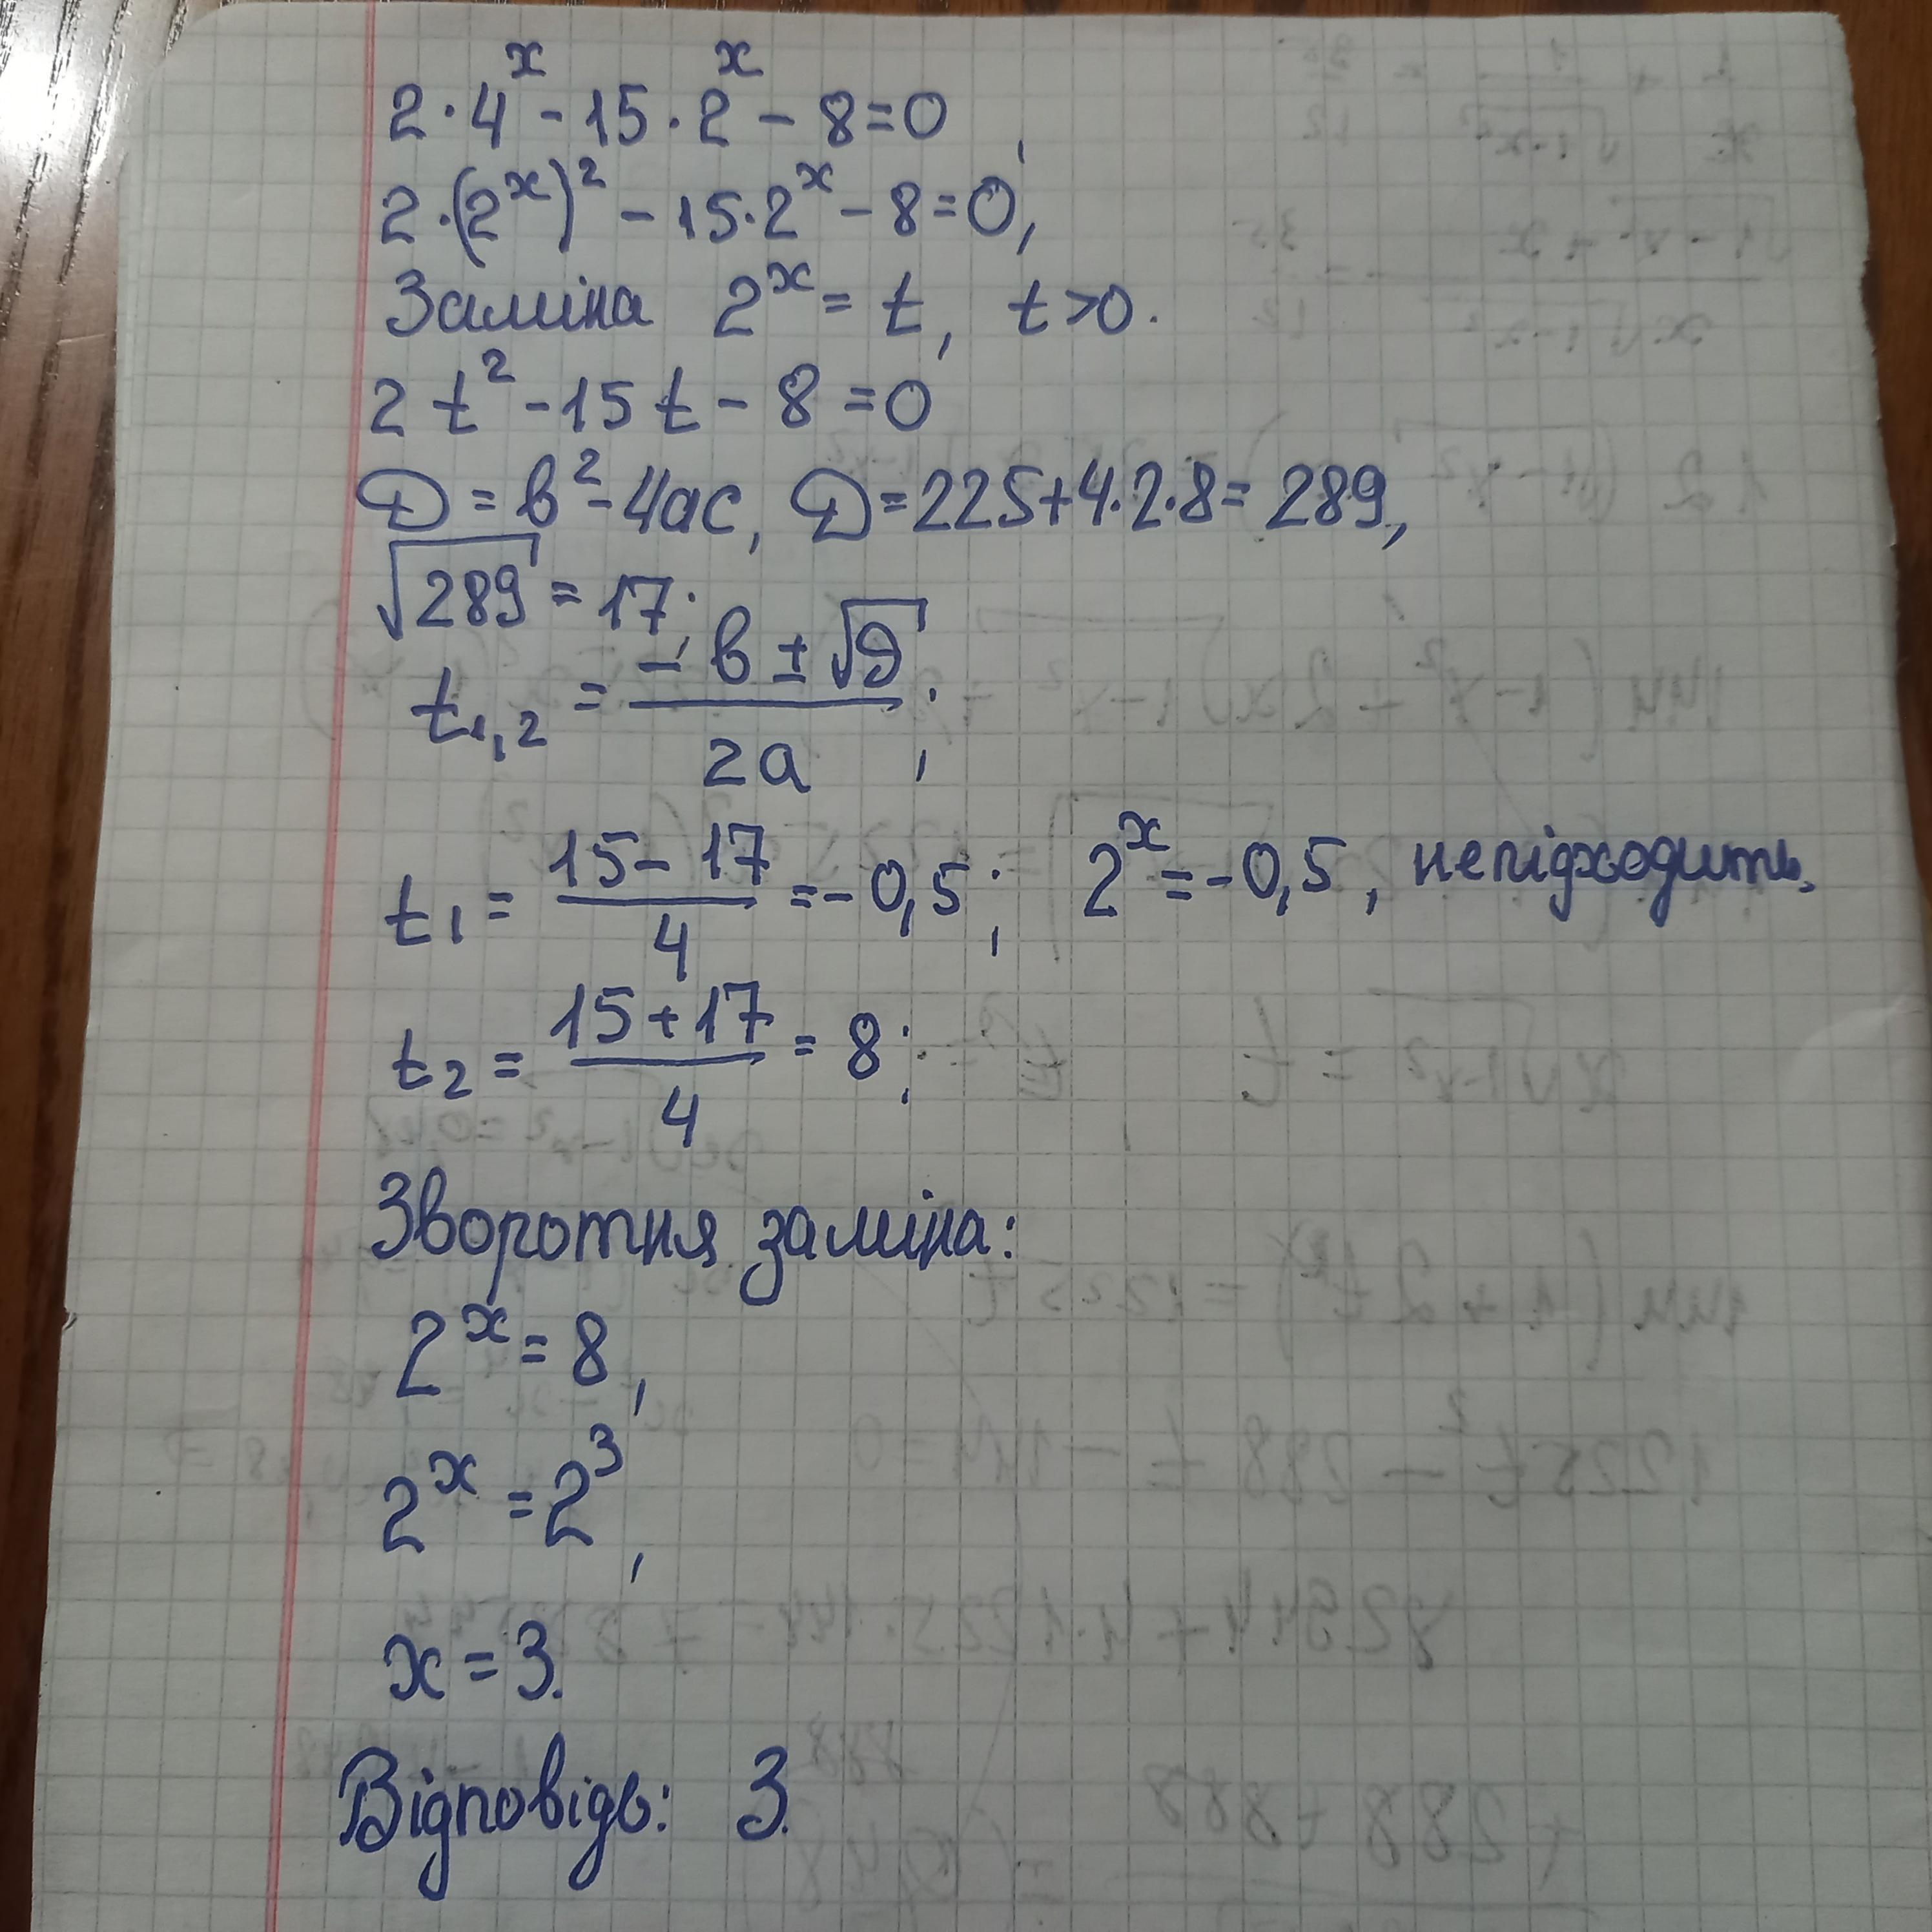 2·4ˣ - 15·2ˣ - 8 = 0,
2·(2ˣ)² - 15·2ˣ - 8 = 0,
Заміна 2ˣ = t, t > 0.
2t² - 15t - 8 = 0
D = в² - 4ac, D = 225 + 4·2·8 = 289,
√289 = 17;
t₁,₂ = (-в ± √D) / 2a;
t₁ = (15 - 17) / 4 = -0,5; 2ˣ = -0,5, не підходить.
t₂ = (15 + 17) / 4 = 8;
Зворотня заміна:
2ˣ = 8,
2ˣ = 2³,
x = 3.
Відповідь: 3.